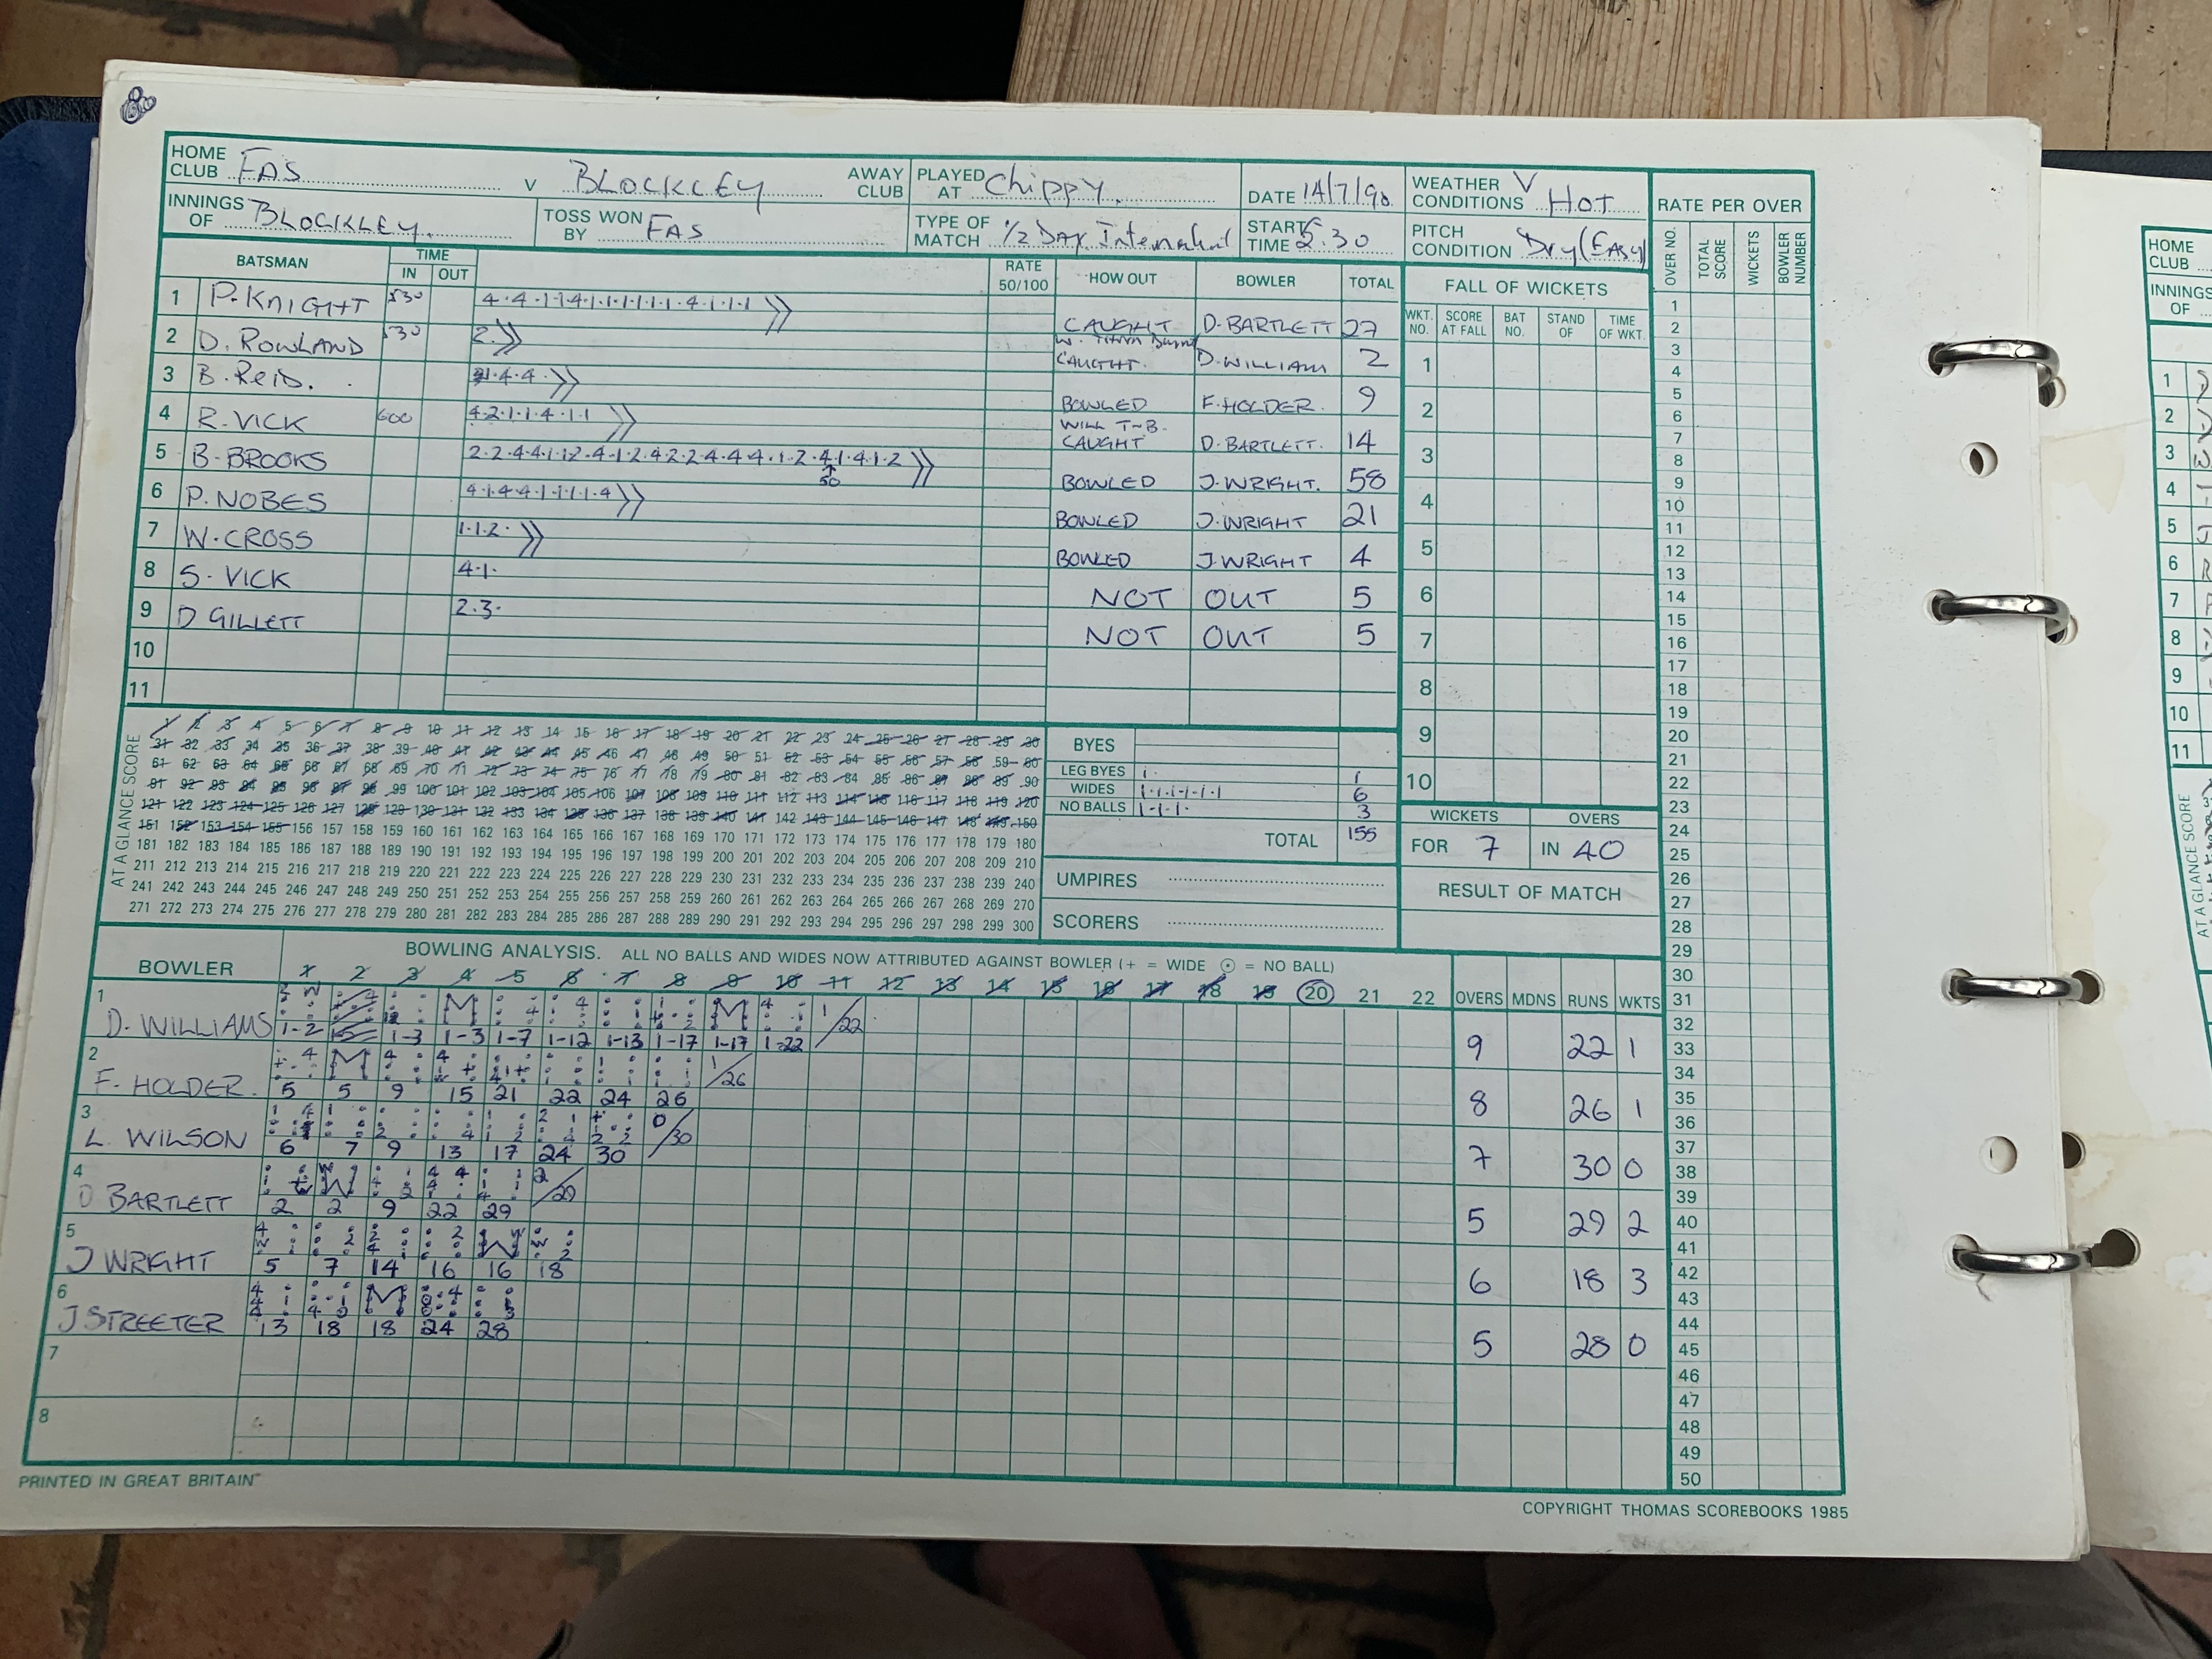 HOME CLUB FAS V BLOCKLEY AWAY CLUB PLAYED AT Chippy. DATE 14/7/90 WEATHER CONDITIONS V HOT RATE PER OVER
INNINGS OF BLOCKLEY. TOSS WON BY FAS TYPE OF MATCH 1/2 DAY START TIME 5.30 PITCH CONDITION Dry (EASY)
BATSMAN TIME IN OUT RATE 50/100 HOW OUT BOWLER TOTAL FALL OF WICKETS
WKT. NO. SCORE AT FALL BAT NO. STAND OF TIME OF WKT. OVER NO. TOTAL SCORE WICKETS BOWLER NUMBER
1 P. KNIGHT 530 4·4·1·1·4·1·1·1·1·1·1·4·1·1·1 CAUGHT D. BARTLETT 27
2 D. ROWLAND 530 2· CAUGHT. D. WILLIAM 2
3 B. Reid. 1·4·4· BOWLED F. HOLDER. 9
4 R. VICK 600 4·2·1·1·4·1·1 WILL T-B. CAUGHT D. BARTLETT. 14
5 B. BROOKS 2·2·4·4·1·1·2·4·1·2·4·2·2·4·4·4·1·2·4·1·4·1·2 50 BOWLED J. WRIGHT. 58
6 P. NOBES 4·1·4·4·1·1·1·1·4 BOWLED J. WRIGHT 21
7 W. CROSS 1·1·2· BOWLED J. WRIGHT 4
8 S. VICK 4·1· NOT OUT 5
9 D GILLETT 2·3· NOT OUT 5
10
11
AT A GLANCE SCORE
1 2 3 4 5 6 7 8 9 10 11 12 13 14 15 16 17 18 19 20 21 22 23 24 25 26 27 28 29 30
31 32 33 34 35 36 37 38 39 40 41 42 43 44 45 46 47 48 49 50 51 52 53 54 55 56 57 58 59 60
61 62 63 64 65 66 67 68 69 70 71 72 73 74 75 76 77 78 79 80 81 82 83 84 85 86 87 88 89 90
91 92 93 94 95 96 97 98 99 100 101 102 103 104 105 106 107 108 109 110 111 112 113 114 115 116 117 118 119 120
121 122 123 124 125 126 127 128 129 130 131 132 133 134 135 136 137 138 139 140 141 142 143 144 145 146 147 148 149 150
151 152 153 154 155 156 157 158 159 160 161 162 163 164 165 166 167 168 169 170 171 172 173 174 175 176 177 178 179 180
181 182 183 184 185 186 187 188 189 190 191 192 193 194 195 196 197 198 199 200 201 202 203 204 205 206 207 208 209 210
211 212 213 214 215 216 217 218 219 220 221 222 223 224 225 226 227 228 229 230 231 232 233 234 235 236 237 238 239 240
241 242 243 244 245 246 247 248 249 250 251 252 253 254 255 256 257 258 259 260 261 262 263 264 265 266 267 268 269 270
271 272 273 274 275 276 277 278 279 280 281 282 283 284 285 286 287 288 289 290 291 292 293 294 295 296 297 298 299 300
BYES
LEG BYES 1· 1
WIDES 1·1·1·1·1·1 6
NO BALLS 1·1·1· 3
TOTAL 155
UMPIRES
SCORERS
1
2
3
4
5
6
7
8
9
10
WICKETS OVERS
FOR 7 IN 40
RESULT OF MATCH
BOWLING ANALYSIS. ALL NO BALLS AND WIDES NOW ATTRIBUTED AGAINST BOWLER (+ = WIDE ⊙ = NO BALL)
BOWLER 1 2 3 4 5 6 7 8 9 10 11 12 13 14 15 16 17 18 19 20 21 22 OVERS MDNS RUNS WKTS
1 D. WILLIAMS 1-2 1-3 1-3 1-7 1-12 1-13 1-17 1-17 1-22 1/22 9 22 1
2 F. HOLDER. 5 5 9 15 21 22 24 26 1/26 8 26 1
3 L. WILSON 6 7 9 13 17 24 30 0/30 7 30 0
4 D BARTLETT 2 2 9 22 29 2/29 5 29 2
5 J WRIGHT 5 7 14 16 16 18 6 18 3
6 J STREETER 13 18 18 24 28 5 28 0
7
8
1
2
3
4
5
6
7
8
9
10
11
12
13
14
15
16
17
18
19
20
21
22
23
24
25
26
27
28
29
30
31
32
33
34
35
36
37
38
39
40
41
42
43
44
45
46
47
48
49
50
PRINTED IN GREAT BRITAIN
COPYRIGHT THOMAS SCOREBOOKS 1985
HOME CLUB
INNINGS OF
1
2
3
4
5
6
7
8
9
10
11
AT A GLANCE SCORE